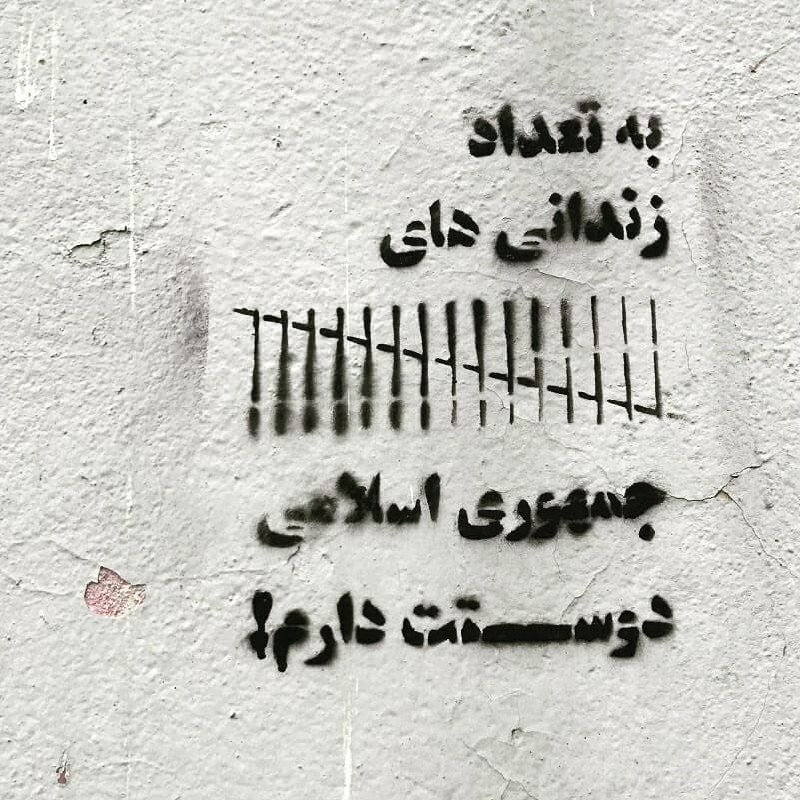 به تعداد
زندانی های
جمهوری اسلامی
دوستت دارم!